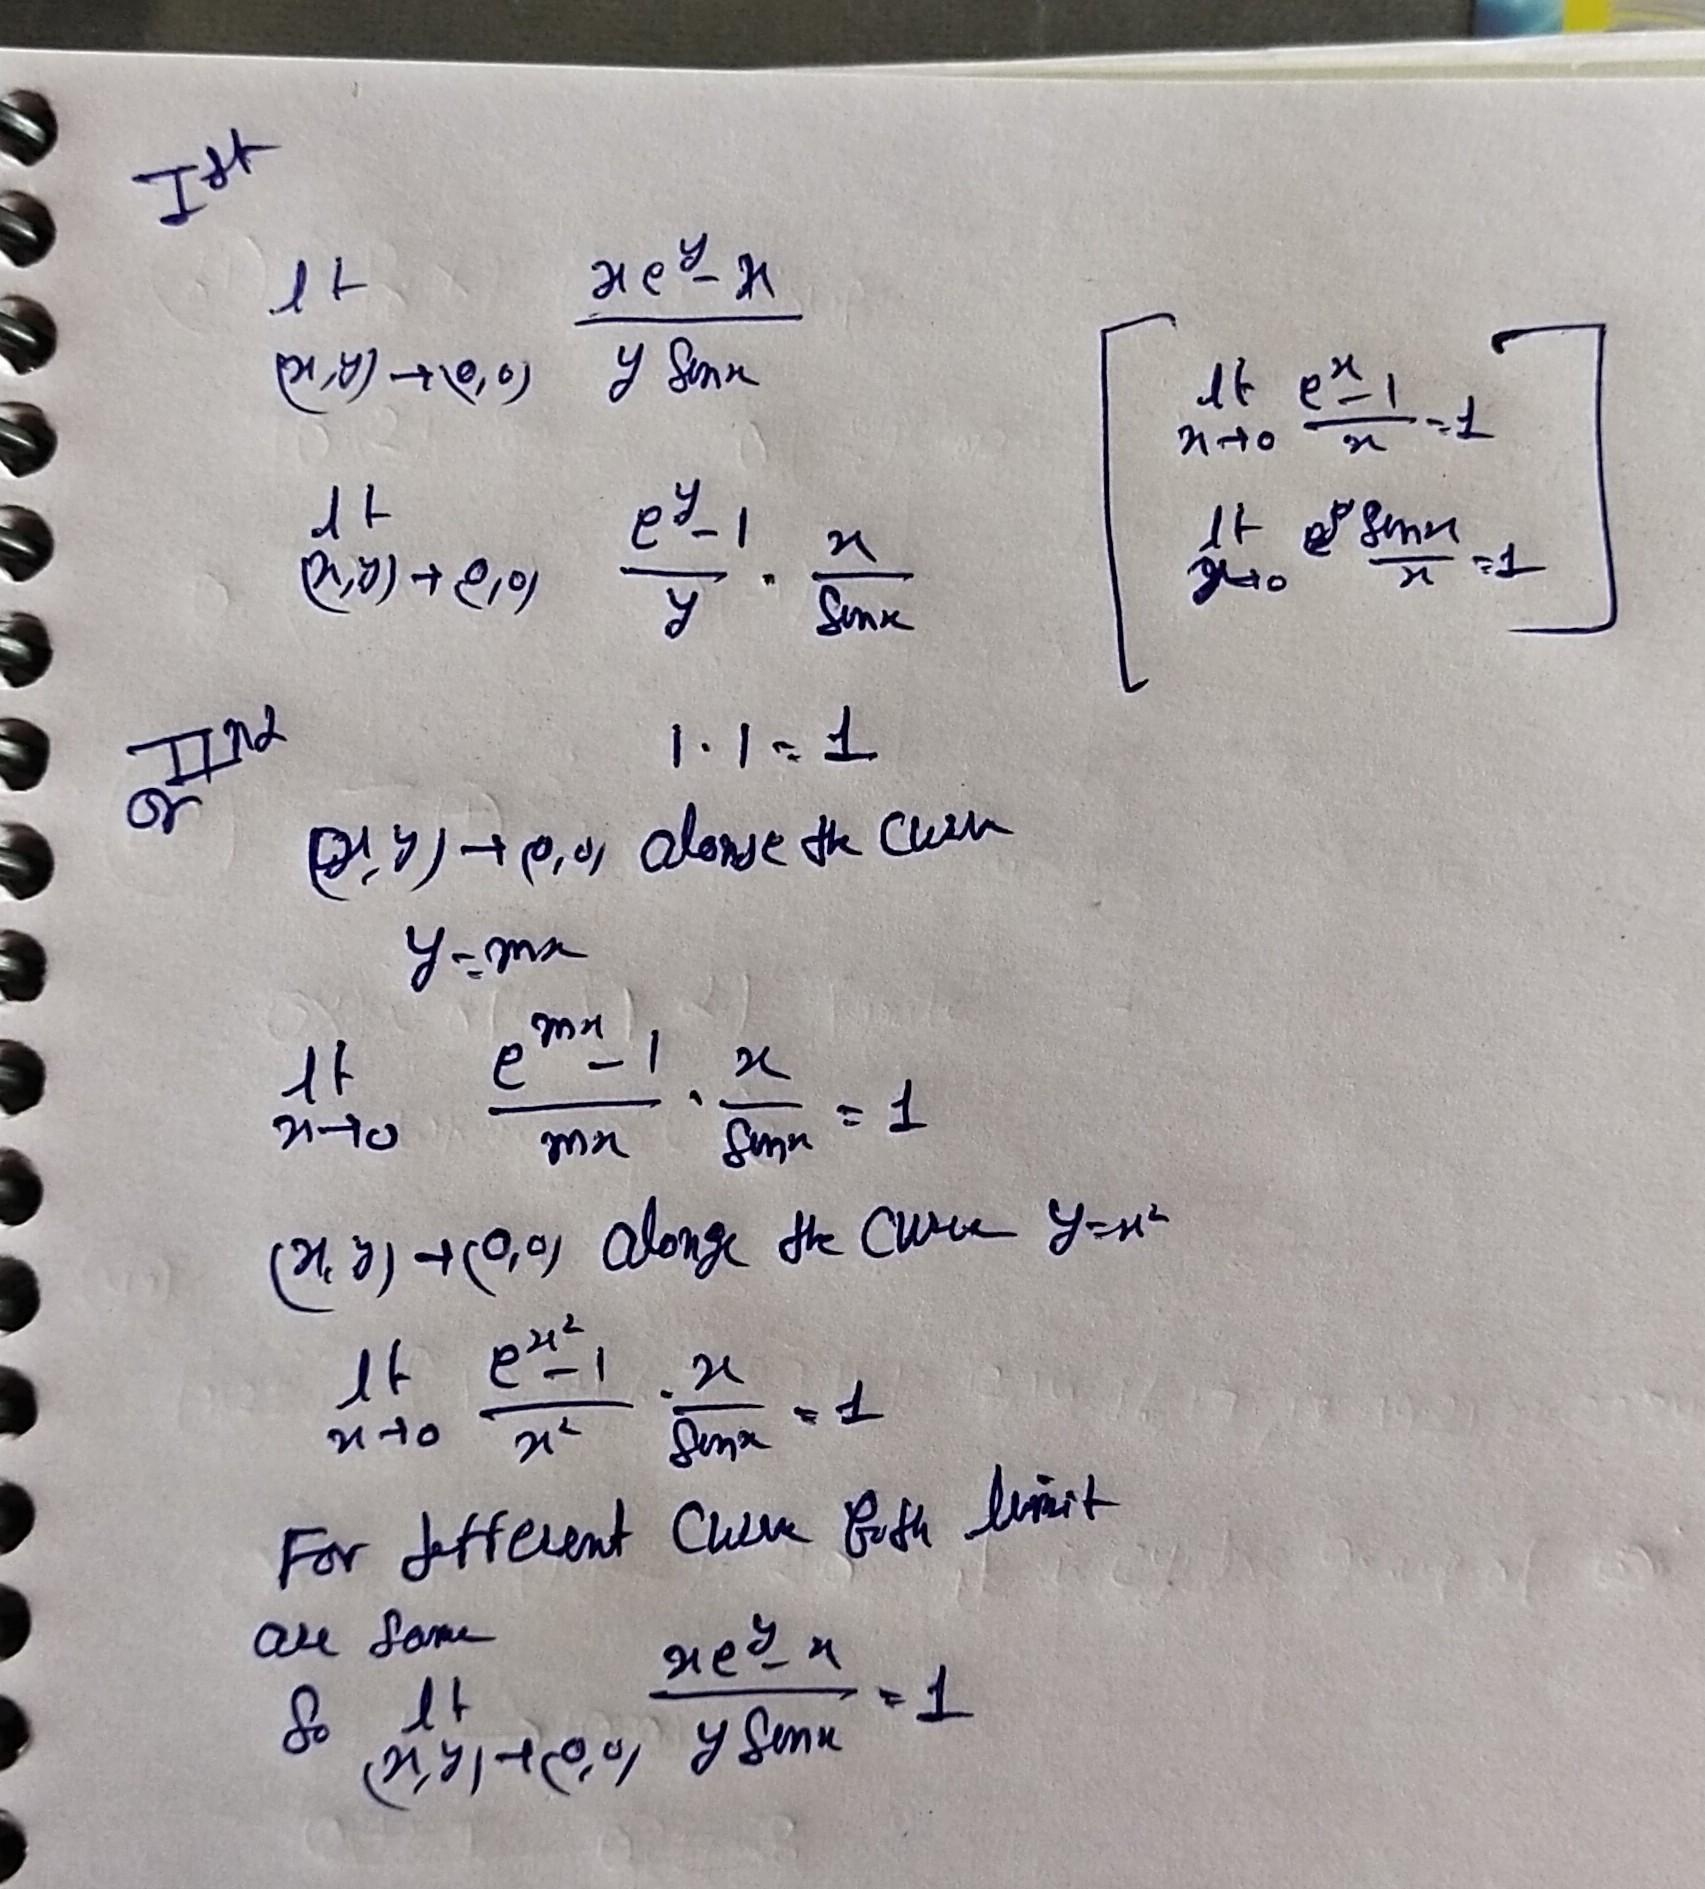 Ist
lt (x,y)→(0,0) (xe^y - x)/(y Sinx)
[ lt x→0 (e^x - 1)/x = 1
lt x→0 Sinx/x = 1 ]
lt (x,y)→(0,0) (e^y - 1)/y · x/Sinx
IInd
1·1 = 1
or
(x,y)→(0,0) alonge the curve
y = mx
lt x→0 (e^mx - 1)/mx · x/Sinx = 1
(x,y)→(0,0) alonge the curve y=x²
lt x→0 (e^x² - 1)/x² · x/Sinx = 1
For different Curve both limit
are same
So lt (x,y)→(0,0) (xe^y - x)/(y Sinx) = 1